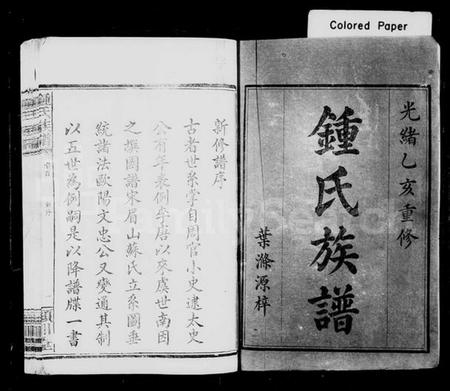 Colored Paper
光緒乙亥重修
鍾氏族譜
葉滌源梓
新修譜序
古者世系學自周官小史逮太史
公有年表例矣唐以來虞世南因
之撰圖譜宋眉山蘇氏立系圖垂
統諸法歐陽文忠公又變通其制
以五世為例嗣是以降譜牒一書
鍾氏族譜
FamilySearch